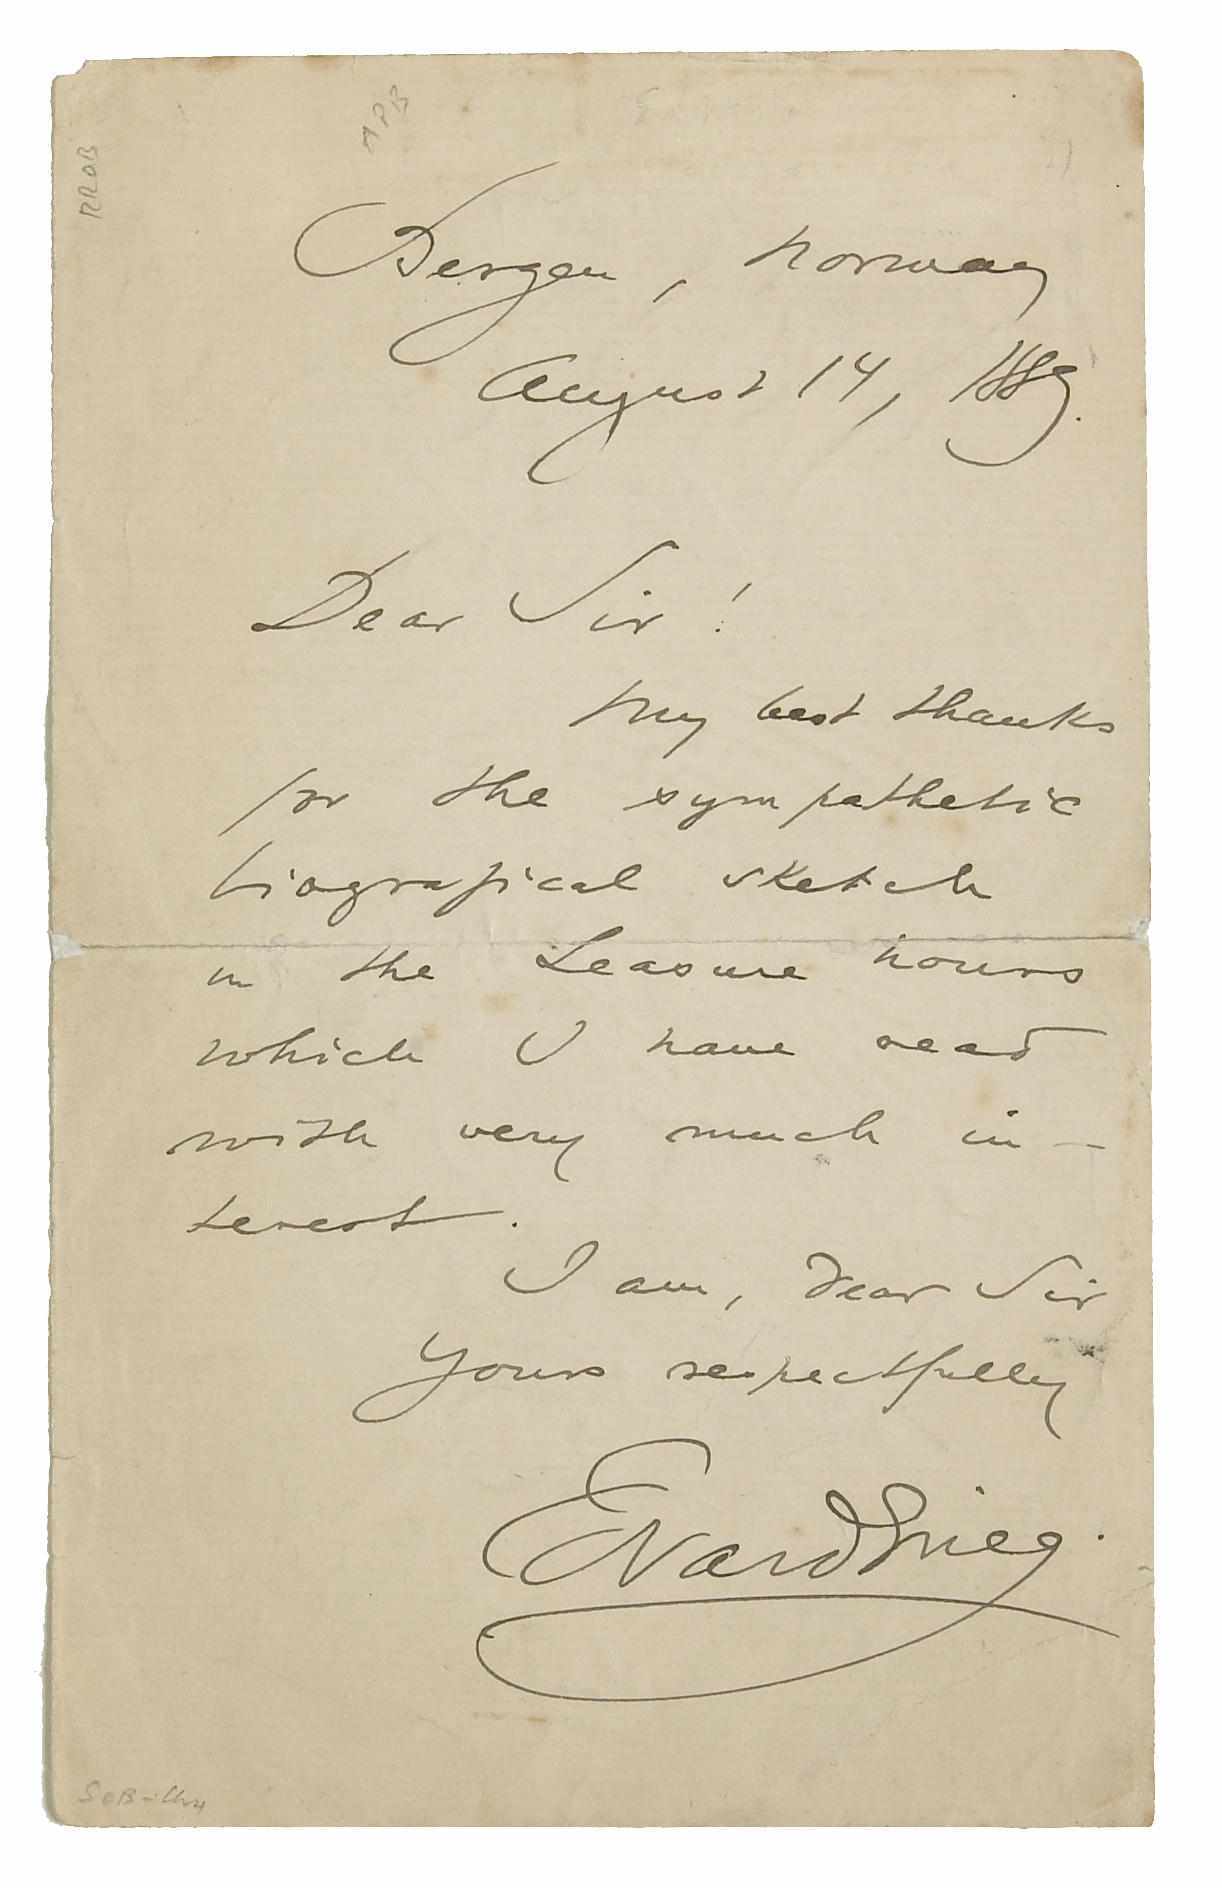 RROB
APB
Bergen, Norway
August 14, 1889.
Dear Sir!
My best thanks
for the sympathetic
biografical sketch
in the Leasure hours
which I have read
with very much in-
terest.
I am, dear Sir
Yours respectfully
Edvard Grieg.